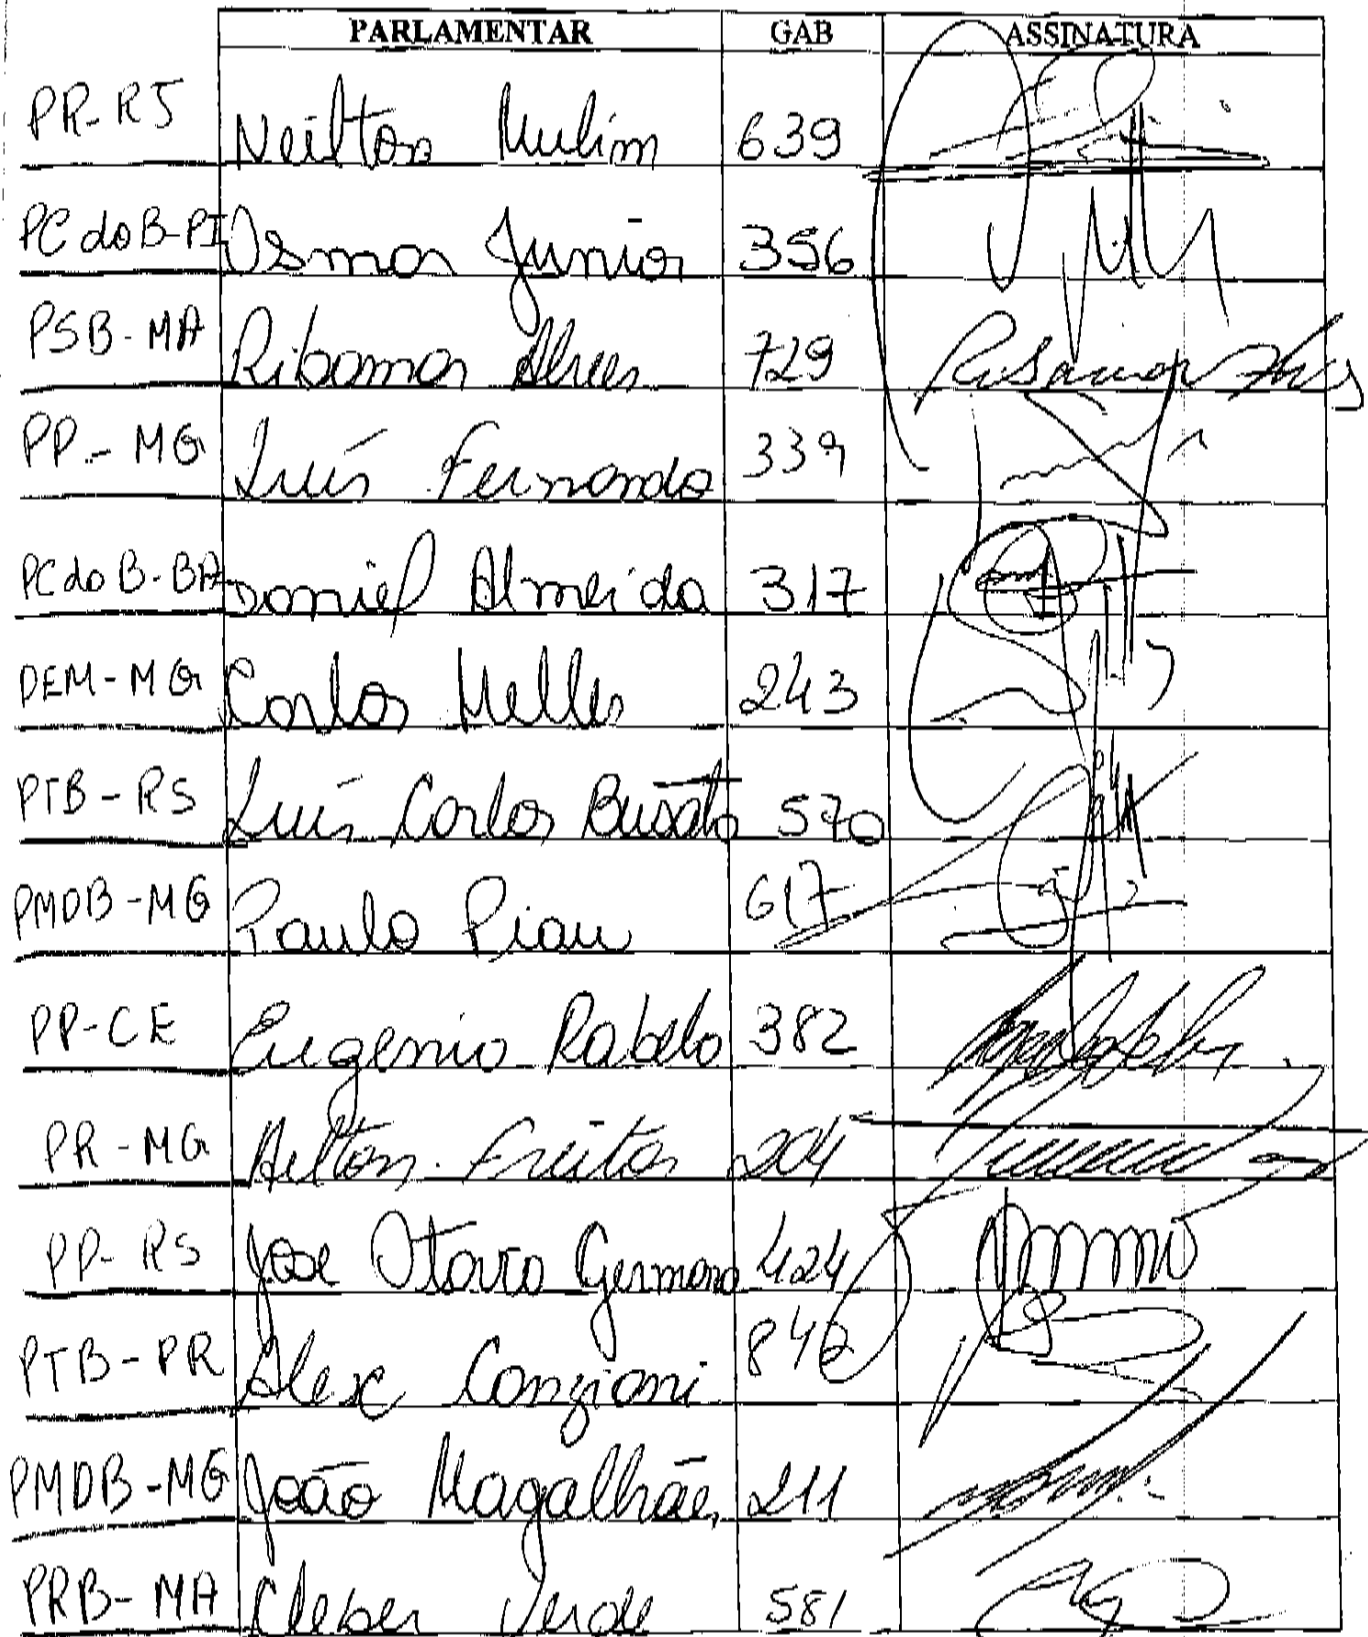 PARLAMENTAR GAB ASSINATURA
PR-RJ Neilton Mulim 639
PCdoB-PI Osmar Junior 356
PSB-MA Ribamar Alves 729 Ribamar Alves
PP-MG Luís Fernando 339
PCdoB-BA Daniel Almeida 317
DEM-MG Carlos Melles 243
PTB-RS Luís Carlos Busato 570
PMDB-MG Paulo Piau 617
PP-CE Eugenio Rabelo 382
PR-MG Aelton Freitas 204
PP-RS Jose Otavio Germano 424
PTB-PR Alex Canziani 842
PMDB-MG João Magalhães 211
PRB-MA Cleber Verde 581